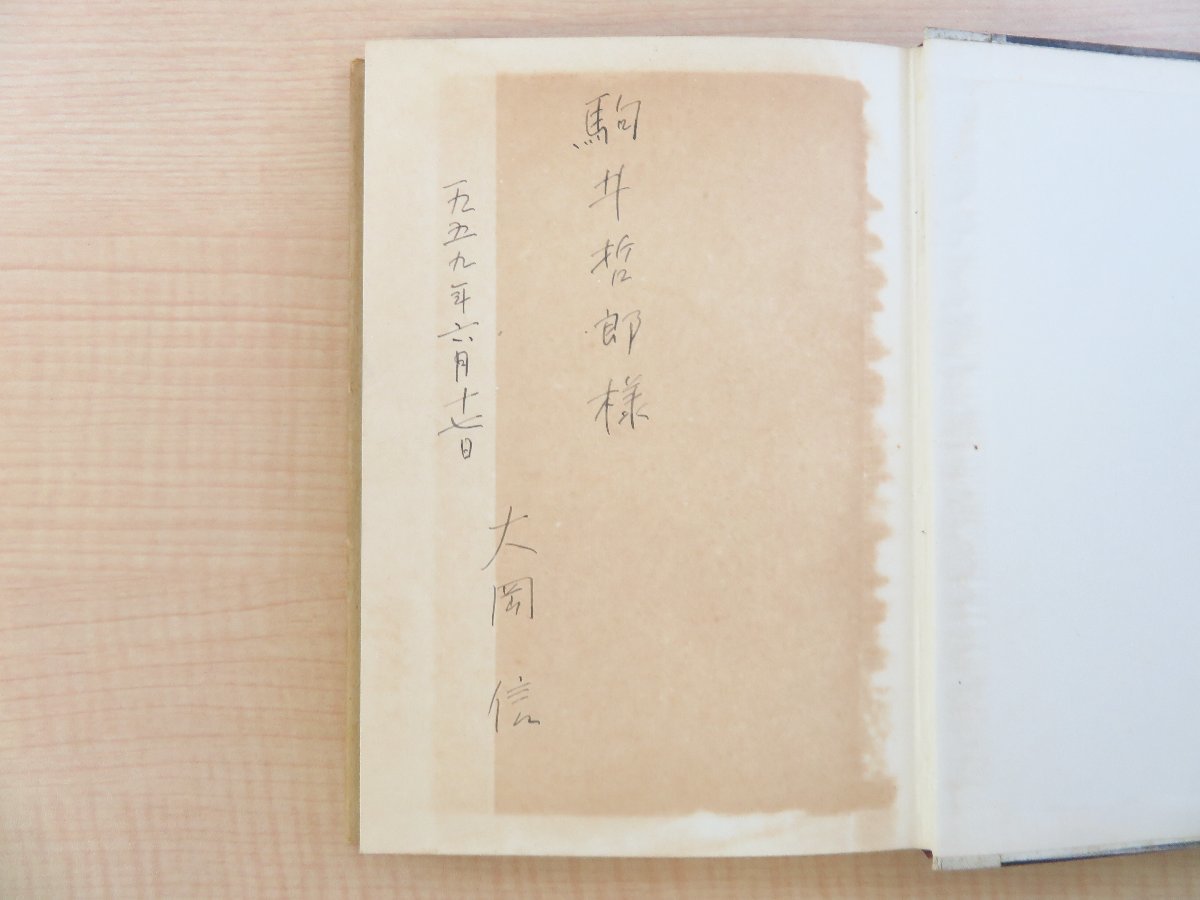 駒井哲郎様
一九五九年六月十七日
大岡信